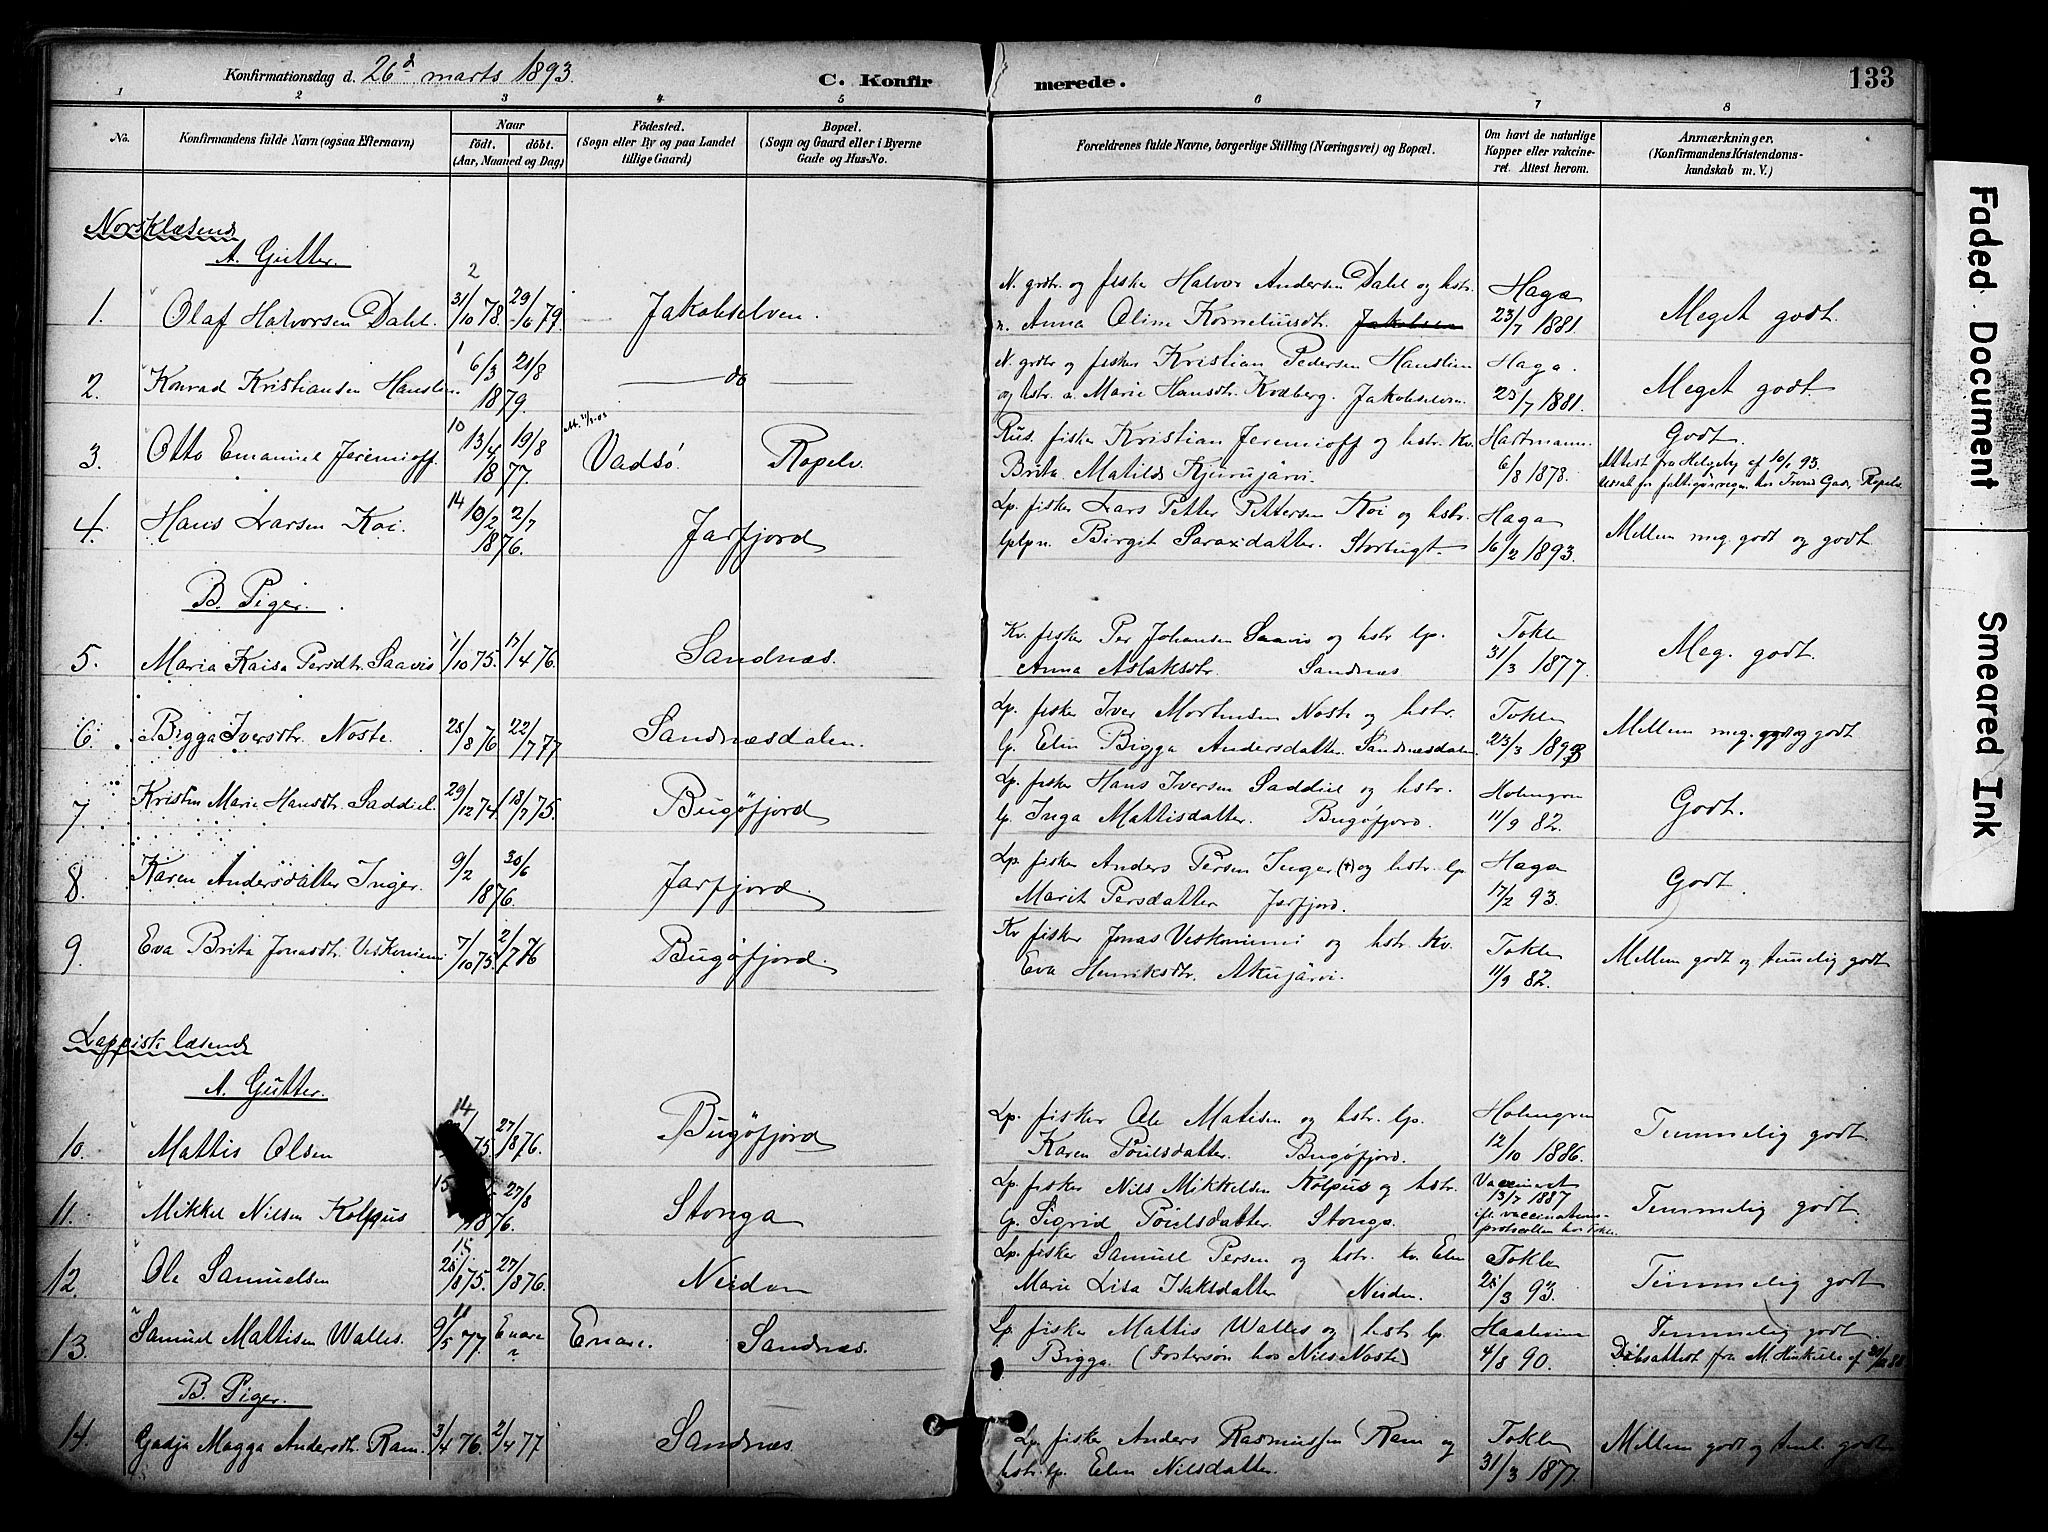 Konfirmationsdag d. 26d marts 1893.
C. Konfirmerede.
133
1 2 3 4 5 6 7 8
No.
Konfirmandens fulde Navn (ogsaa Efternavn)
Naar
födt. döbt.
(Aar, Maaned og Dag)
Födested.
(Sogn eller By og paa Landet
tillige Gaard)
Bopæl.
(Sogn og Gaard eller i Byerne
Gade og Hus-No.
Forældrenes fulde Navne, borgerlige Stilling (Næringsvei) og Bopæl.
Om havt de naturlige
Kopper eller vakcine-
ret. Attest herom.
Anmærkninger,
(Konfirmandens Kristendoms-
kundskab m. V.)
Norsklæsende
A. Gutter.
1. Olaf Halvorsen Dahl. 2 31/10 78. 29/6 79. Jakobselven.
N. grdbr. og fisker Halvor Andersen Dahl og hstr.
n. Anna Oline Korneliusdtr. Jakobsen
Haga 23/7 1881.
Meget godt.
2. Konrad Kristiansen Hauslien 1 6/3 21/8 1879. do
N. grdbr og fisker Kristian Pedersen Hauslien
og hstr. n. Marie Hansdtr. Kvalberg. Jakobselven.
Haga. 23/7 1881.
Meget godt.
3. Otto Emanuel Jeremioff. 10 13/4 19/8 1877. Vadsö. Ropelv.
Rus. fisker Kristian Jeremioff og hstr. Kv.
Brita Matilde Kjurujärvi.
Hartmann. 6/8 1878.
Godt.
Attest fra Helgeby af 10/1 93.
4. Hans Larsen Koi. 14 10/2 2/7 1876. Jarfjord
Lp. fisker Lars Petter Pettersen Koi og hstr.
Birgit Saraxdatter. Storbugt.
Haga 16/2 1893.
Mellem meg. godt og godt
B. Piger.
5. Maria Kaisa Persdtr. Saavis 1/10 75. 17/4 76. Sandnæs.
Kv. fisker Per Johansen Saavis og hstr lp.
Anna Aslaksdtr. Sandnæs.
Tokle 31/3 1877.
Meg. godt.
6. Bigga Iversdtr. Noste. 28/8 76 22/7 77 Sandnæsdalen.
Lp. fisker Iver Mortensen Noste og hstr.
lp. Elin Bigga Andersdatter. Sandnæsdalen
Tokle 23/3 1893
Mellem meg. godt og godt
7 Kristin Marie Hansdtr. Saddiel. 29/12 74 18/7 75. Bugöfjord
Lp. fisker Hans Iversen Saddiel og hstr.
lp. Inga Mattisdatter. Bugöfjord.
Holmgren 11/9 82.
Godt.
8 Karen Andersdatter Inger. 9/2 30/6 1876. Jarfjord.
Lp. fisker Anders Persen Inger (+) og hstr. lp
Marit Persdatter Jarfjord.
Haga 17/2 93.
Godt.
9. Eva Brita Jonasdtr. Veskoniemi 7/10 75. 2/7 76 Bugöfjord.
Kv fisker Jonas Veskoniemi og hstr. Kv.
Eva Henriksdtr. Akujärvi.
Tokle 11/9 82.
Mellem godt og temmelig godt
Lappisk læsende
A. Gutter.
10. Mattis Olsen 14 75. 27/8 76. Bugöfjord
Lp. fisker Ole Matisen og hstr. lp.
Karen Poulsdatter. Bugöfjord.
Holmgren 12/10 1886.
Temmelig godt.
11. Mikkel Nilsen Kolpus 15 27/8 1876. Stonga
Lp. fisker Nils Mikkelsen Kolpus og hstr.
lp. Sigrid Poulsdatter. Stonga.
Vaccineret
13/7 1887
ifl. vaccinations-
protocollen hos Tokle.
Temmelig godt.
12. Ole Samuelsen 15 28/8 75. 27/8 76. Neiden
Lp. fisker Samuel Persen og hstr. kv. Elen
Marie Lisa Isaksdatter Neiden.
Tokle 28/3 93.
Temmelig godt
13. Samuel Mattisen Walles. 11 9/5 77. Enare Enare. Sandnæs.
Lp. fisker Mattis Walles og hstr. lp.
Bigga. (Fostersön hos Nils Noste)
4/8 90.
Temmelig godt.
Döbsattest fra M. Hinkula af
B. Piger.
14. Gadja Magga Andersdtr. Ram. 3/4 76. 2/4 77. Sandnæs.
Lp. fisker Anders Rasmussen Ram og
hstr. lp. Elen Nilsdatter.
Tokle 31/3 1877.
Mellem godt og teml. godt
Faded Document
Smeared Ink